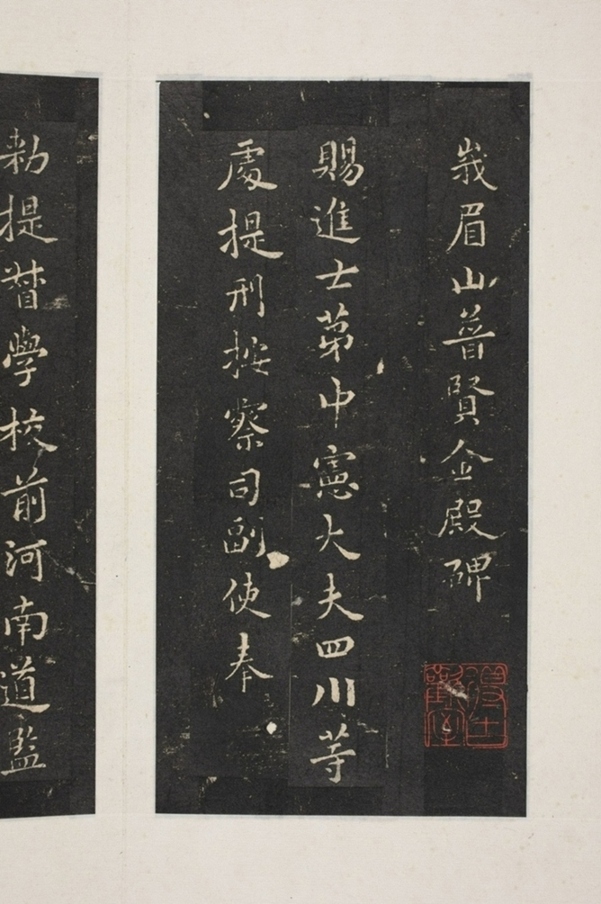 峩眉山普賢金殿碑
賜進士苐中憲大夫四川荨
處提刑按察司副使奉
勑提督學校前河南道監